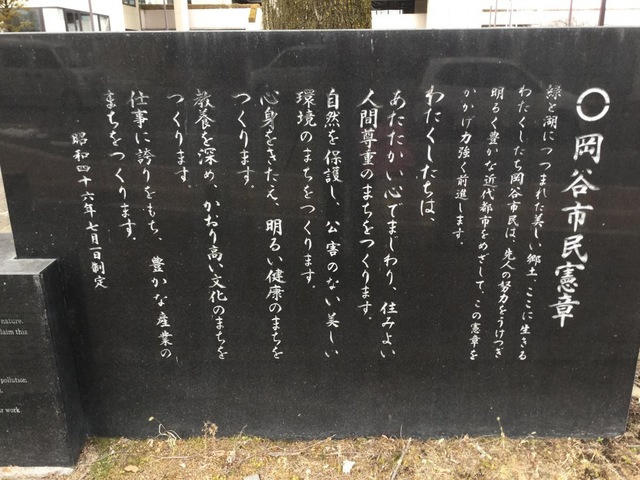 〇岡谷市民憲章
緑と湖につつまれた美しい郷土、ここに生きる
わたくしたち岡谷市民は、先人の努力をうけつぎ
明るく豊かな近代都市をめざして、この憲章を
かかげ力強く前進します。
わたくしたちは、
あたたかい心でまじわり、住みよい
人間尊重のまちをつくります。
自然を保護し、公害のない美しい
環境のまちをつくります。
心身をきたえ、明るい健康のまちを
つくります。
教養を深め、かおり高い文化のまちを
つくります。
仕事に誇りをもち、豊かな産業の
まちをつくります。
昭和四十六年七月一日制定
nature.
claim this
pollution
our work